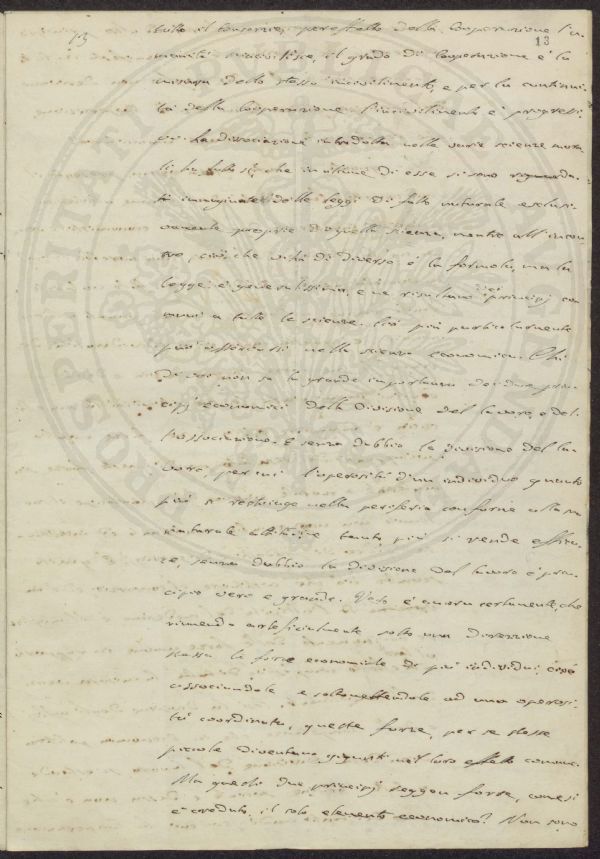 73
13
tutto il consorzio, per effetto della Cooperazione l'u-
manità incivilisce, il grado di Cooperazione è la
misura dello stesso incivilimento, e per la continui-
tà della Cooperazione l'incivilimento è progressi-
vo. La dissociazione introdotta nelle varie scienze mora-
li ha fatto sì, che in ultimo di esse si sono
immaginate delle leggi di fatto naturale esclusi-
vamente proprie di quella scienza, mentre all'incon-
tro, ciò che vi ha di diverso è la formola, ma la
legge è generalissima, e ne risultano i principj co-
muni a tutte le scienze. Ciò più particolarmente
può osservarsi nella scienza economica. Chi
di voi non sa la grande importanza dei due prin-
cipj economici della Divisione del lavoro, e del-
l'associazione. È senza dubbio la divisione del la-
voro, per cui l'operosità d'un individuo quanto
più si restringe nella periferia conforme alla sua
naturale attitudine tanto più si rende effica-
ce, senza dubbio la divisione del lavoro è prin-
cipio vero e grande. Vero è ancora certamente, che
riunendo artificialmente sotto una direzione
stessa le forze economiche di più individui, cioè
associandole e sottomettendole ad una operosi-
tà coordinata, queste forze, per se stesse
piccole diventano giganti nel loro effetto comune.
Ma questi due principj reggon forse, come si
è creduto, il solo elemento economico? Non sono
PROSPERITATI